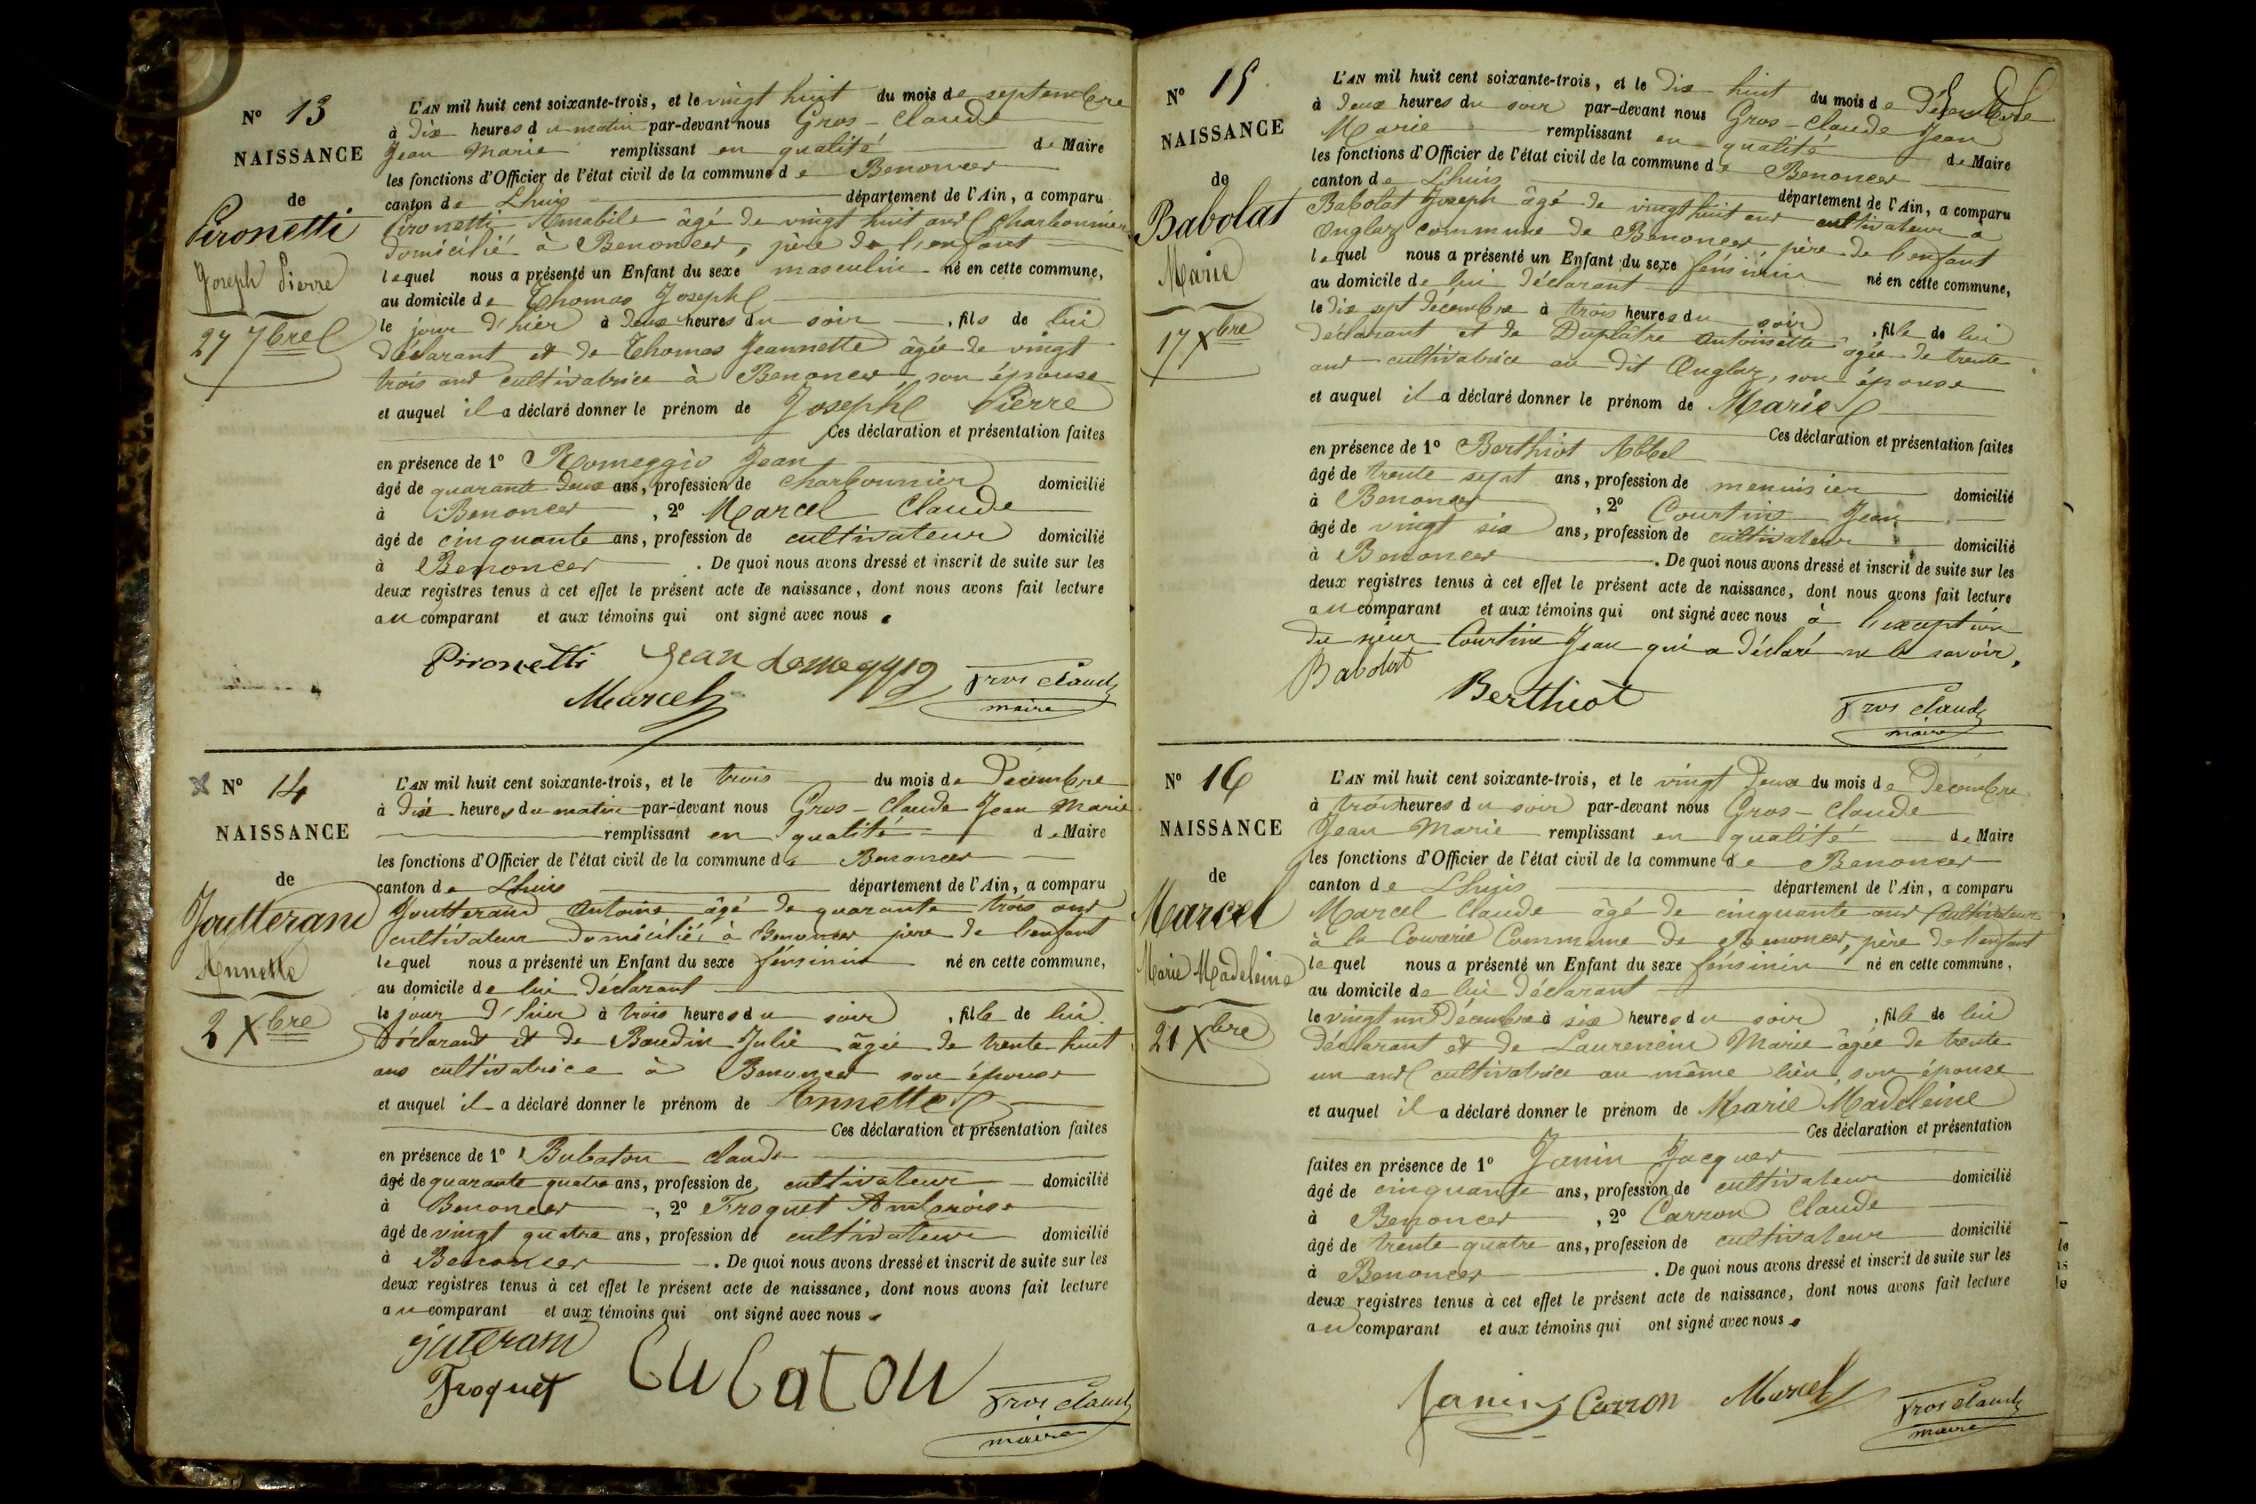 N° 13
NAISSANCE
de
Pironetti
Joseph Pierre
27 7bre
L'AN mil huit cent soixante-trois, et le vingt huit du mois de septembre
à dix heures du matin par-devant nous Gros-Claude
Jean Marie remplissant en qualité de Maire
les fonctions d'Officier de l'état civil de la commune de Benonces
canton de Lhuis département de l'Ain, a comparu
Pironetti Amabile âgé de vingt huit ans charbonnier
domicilié à Benonces, père de l'enfant
lequel nous a présenté un Enfant du sexe masculin né en cette commune,
au domicile de Thomas Joseph
le jour d'hier à deux heures du soir, fils de lui
déclarant et de Thomas Jeannette âgée de vingt
trois ans cultivatrice à Benonces son épouse
et auquel il a déclaré donner le prénom de Joseph Pierre
Ces déclaration et présentation faites
en présence de 1° Romeggio Jean
âgé de quarante deux ans, profession de charbonnier domicilié
à Benonces, 2° Marcel Claude
âgé de cinquante ans, profession de cultivateur domicilié
à Benonces. De quoi nous avons dressé et inscrit de suite sur les
deux registres tenus à cet effet le présent acte de naissance, dont nous avons fait lecture
au comparant et aux témoins qui ont signé avec nous.
Pironetti Jean
Marcel Gros Claude
maire
N° 14
NAISSANCE
de
Joutterand
Annette
2 Xbre
L'AN mil huit cent soixante-trois, et le trois du mois de Décembre
à dix heures du matin par-devant nous Gros-Claude Jean Marie
remplissant en qualité de Maire
les fonctions d'Officier de l'état civil de la commune de Benonces
canton de Lhuis département de l'Ain, a comparu
Joutterand Antoine âgé de quarante trois ans
cultivateur domicilié à Benonces père de l'enfant
lequel nous a présenté un Enfant du sexe féminin né en cette commune,
au domicile de lui déclarant
le jour d'hier à trois heures du soir, fille de lui
déclarant et de Baudin Julie âgée de trente huit
ans cultivatrice à Benonces son épouse
et auquel il a déclaré donner le prénom de Annette
Ces déclaration et présentation faites
en présence de 1° Bubaton Claude
âgé de quarante quatre ans, profession de cultivateur domicilié
à Benonces, 2° Froquet Ambroise
âgé de vingt quatre ans, profession de cultivateur domicilié
à Benonces. De quoi nous avons dressé et inscrit de suite sur les
deux registres tenus à cet effet le présent acte de naissance, dont nous avons fait lecture
au comparant et aux témoins qui ont signé avec nous.
Froquet Gros Claude
maire
N° 15
NAISSANCE
de
Babolat
Marie
17 Xbre
L'AN mil huit cent soixante-trois, et le dix huit du mois de Décembre
à deux heures du soir par-devant nous Gros-Claude Jean
Marie remplissant en qualité de Maire
les fonctions d'Officier de l'état civil de la commune de Benonces
canton de Lhuis département de l'Ain, a comparu
Babolat Joseph âgé de vingt huit ans cultivateur à
Onglaz commune de Benonces père de l'enfant
lequel nous a présenté un Enfant du sexe féminin né en cette commune,
au domicile de lui déclarant
le dix sept décembre à trois heures du soir, fille de lui
déclarant et de Duplâtre Antoinette âgée de trente
ans cultivatrice au dit Onglaz, son épouse
et auquel il a déclaré donner le prénom de Marie
Ces déclaration et présentation faites
en présence de 1° Berthiot Abbel
âgé de trente sept ans, profession de menuisier domicilié
à Benonces, 2° Courtine Jean
âgé de vingt six ans, profession de cultivateur domicilié
à Benonces. De quoi nous avons dressé et inscrit de suite sur les
deux registres tenus à cet effet le présent acte de naissance, dont nous avons fait lecture
au comparant et aux témoins qui ont signé avec nous à l'exception
du sieur Courtine Jean qui a déclaré ne le savoir.
Babolat
Berthiot Gros Claude
maire
N° 16
NAISSANCE
de
Marcel
Marie Madeleine
21 Xbre
L'AN mil huit cent soixante-trois, et le vingt deux du mois de Décembre
à trois heures du soir par-devant nous Gros-Claude
Jean Marie remplissant en qualité de Maire
les fonctions d'Officier de l'état civil de la commune de Benonces
canton de Lhuis département de l'Ain, a comparu
Marcel Claude âgé de cinquante ans cultivateur
à la Courerie Commune de Benonces, père de l'enfant
lequel nous a présenté un Enfant du sexe féminin né en cette commune,
au domicile de lui déclarant
le vingt un Décembre à six heures du soir, fille de lui
déclarant et de Laurencin Marie âgée de trente
un ans cultivatrice au même lieu, son épouse
et auquel il a déclaré donner le prénom de Marie Madeleine
Ces déclaration et présentation
faites en présence de 1° Janin Jacques
âgé de cinquante ans, profession de cultivateur domicilié
à Benonces, 2° Carron Claude
âgé de trente quatre ans, profession de cultivateur domicilié
à Benonces. De quoi nous avons dressé et inscrit de suite sur les
deux registres tenus à cet effet le présent acte de naissance, dont nous avons fait lecture
au comparant et aux témoins qui ont signé avec nous.
Janin Carron Marcel Gros Claude
maire